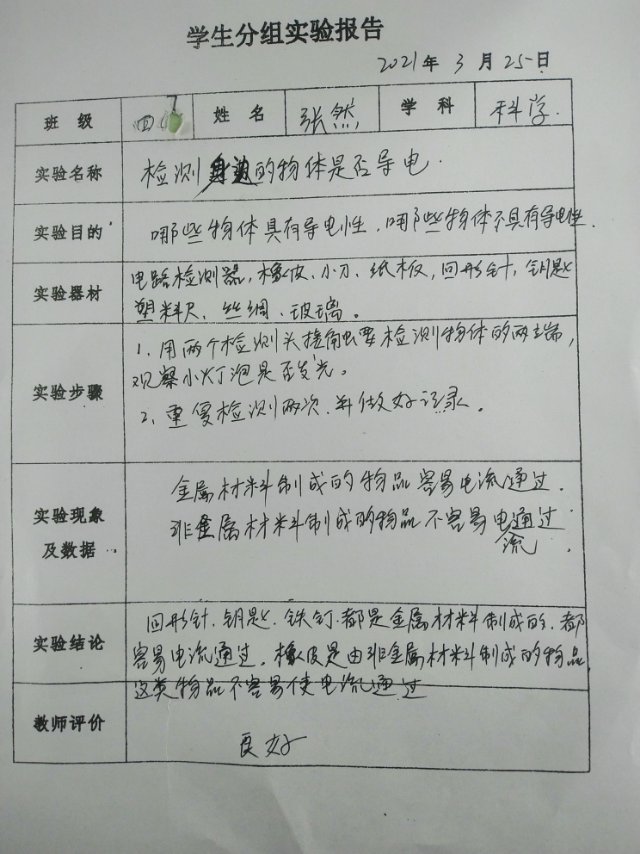 学生分组实验报告
2021年 3 月 25日
班 级 四 姓 名 张然 学 科 科学
实验名称 检测身边的物体是否导电.
实验目的 哪些物体具有导电性.哪些物体不具有导电性.
实验器材
电路检测器,橡皮、小刀、纸板,回形针,钥匙
塑料尺、丝绸、玻璃。
实验步骤
1、用两个检测头接触要检测物体的两端,
观察小灯泡是否发光。
2、重复检测两次.并做好记录。
实验现象
及数据
金属材料制成的物品容易电流通过.
非金属材料制成的物品不容易电流通过.
实验结论
回形针.钥匙.铁钉.都是金属材料制成的.都
容易电流通过.橡皮是由非金属材料制成的物品
这类物品不容易使电流通过
教师评价
良好